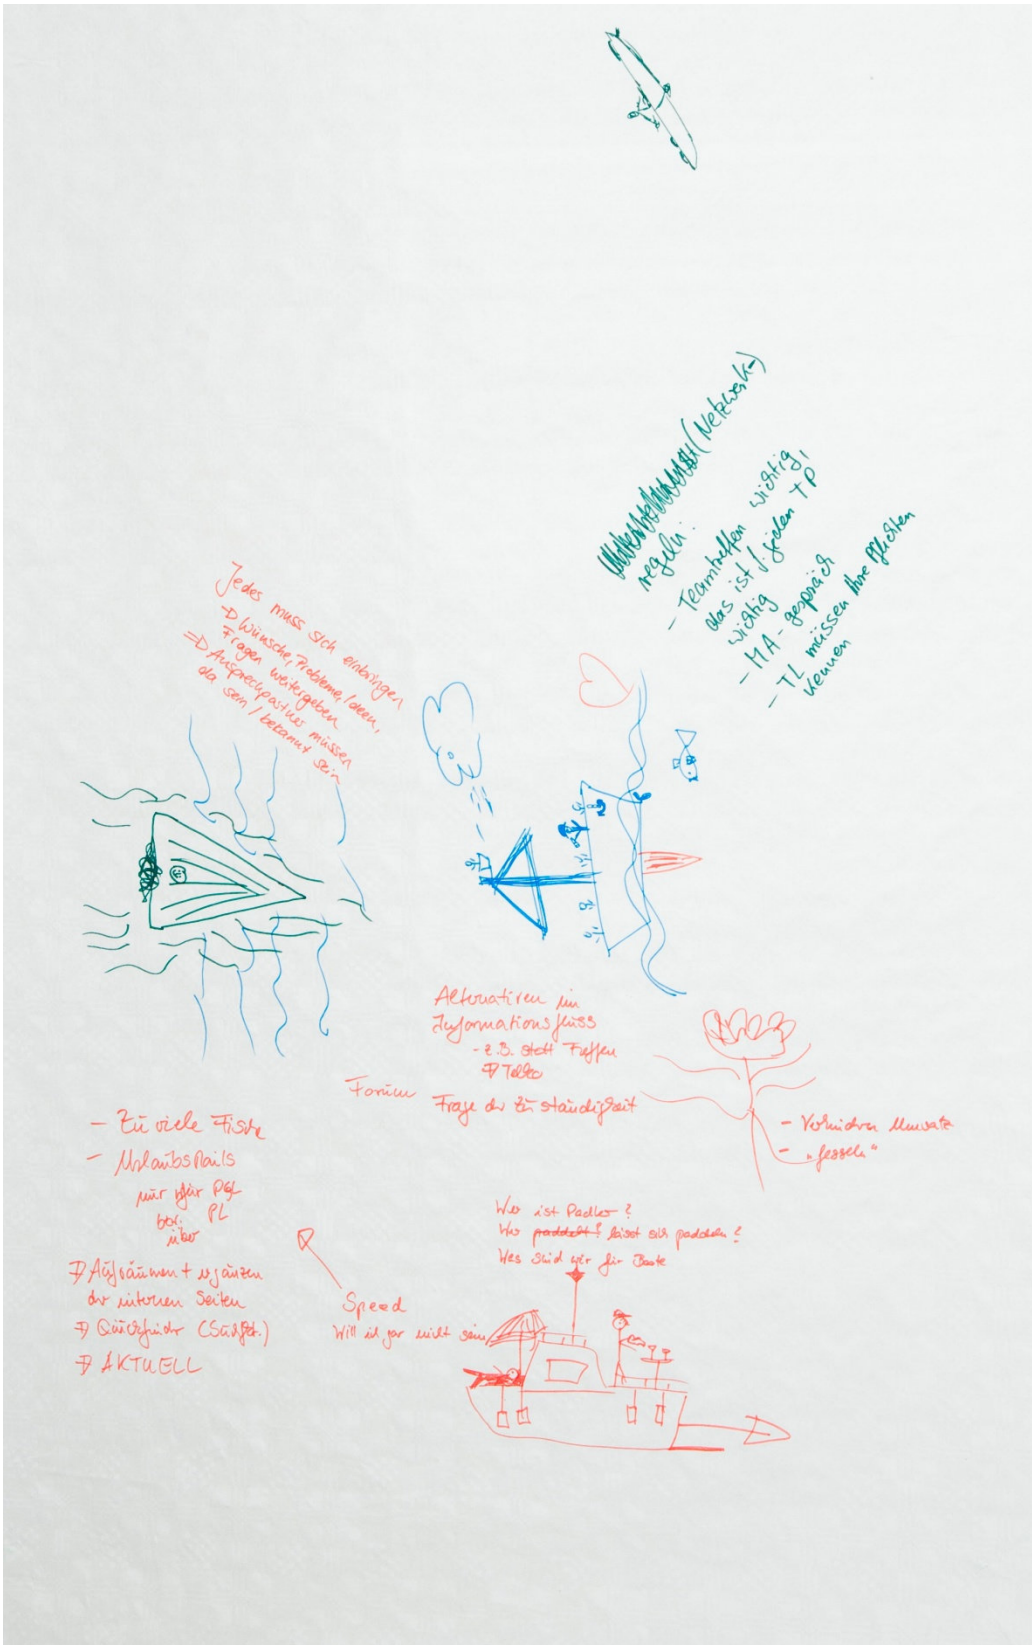 (Netzwerk-)
regeln:
- Teamtreffen wichtig,
das ist f. jeden TP
wichtig
- MA-gespräch
- TL müssen ihre Pflichten
kennen
Jedes muss sich einbringen
⇒ Wünsche, Probleme, Ideen,
Fragen weitergeben
⇒ Ansprechpartner müssen
da sein / bekannt sein
Alternativen im
Informationsfluss
- z.B. statt Treffen
⇒ Telko
Forum Frage der Zuständigkeit
- Verhindern
- "fesseln"
- Zu viele Fische
- Urlaubsmails
nur für PGL
bzw. PL
über
⇒ Aufräumen + ergänzen
der internen Seiten
⇒ Quickfinder
⇒ AKTUELL
Speed
Will ich gar nicht sein
Wer ist Padler?
Wer paddelt? lässt sich paddeln?
Was sind wir für Boote